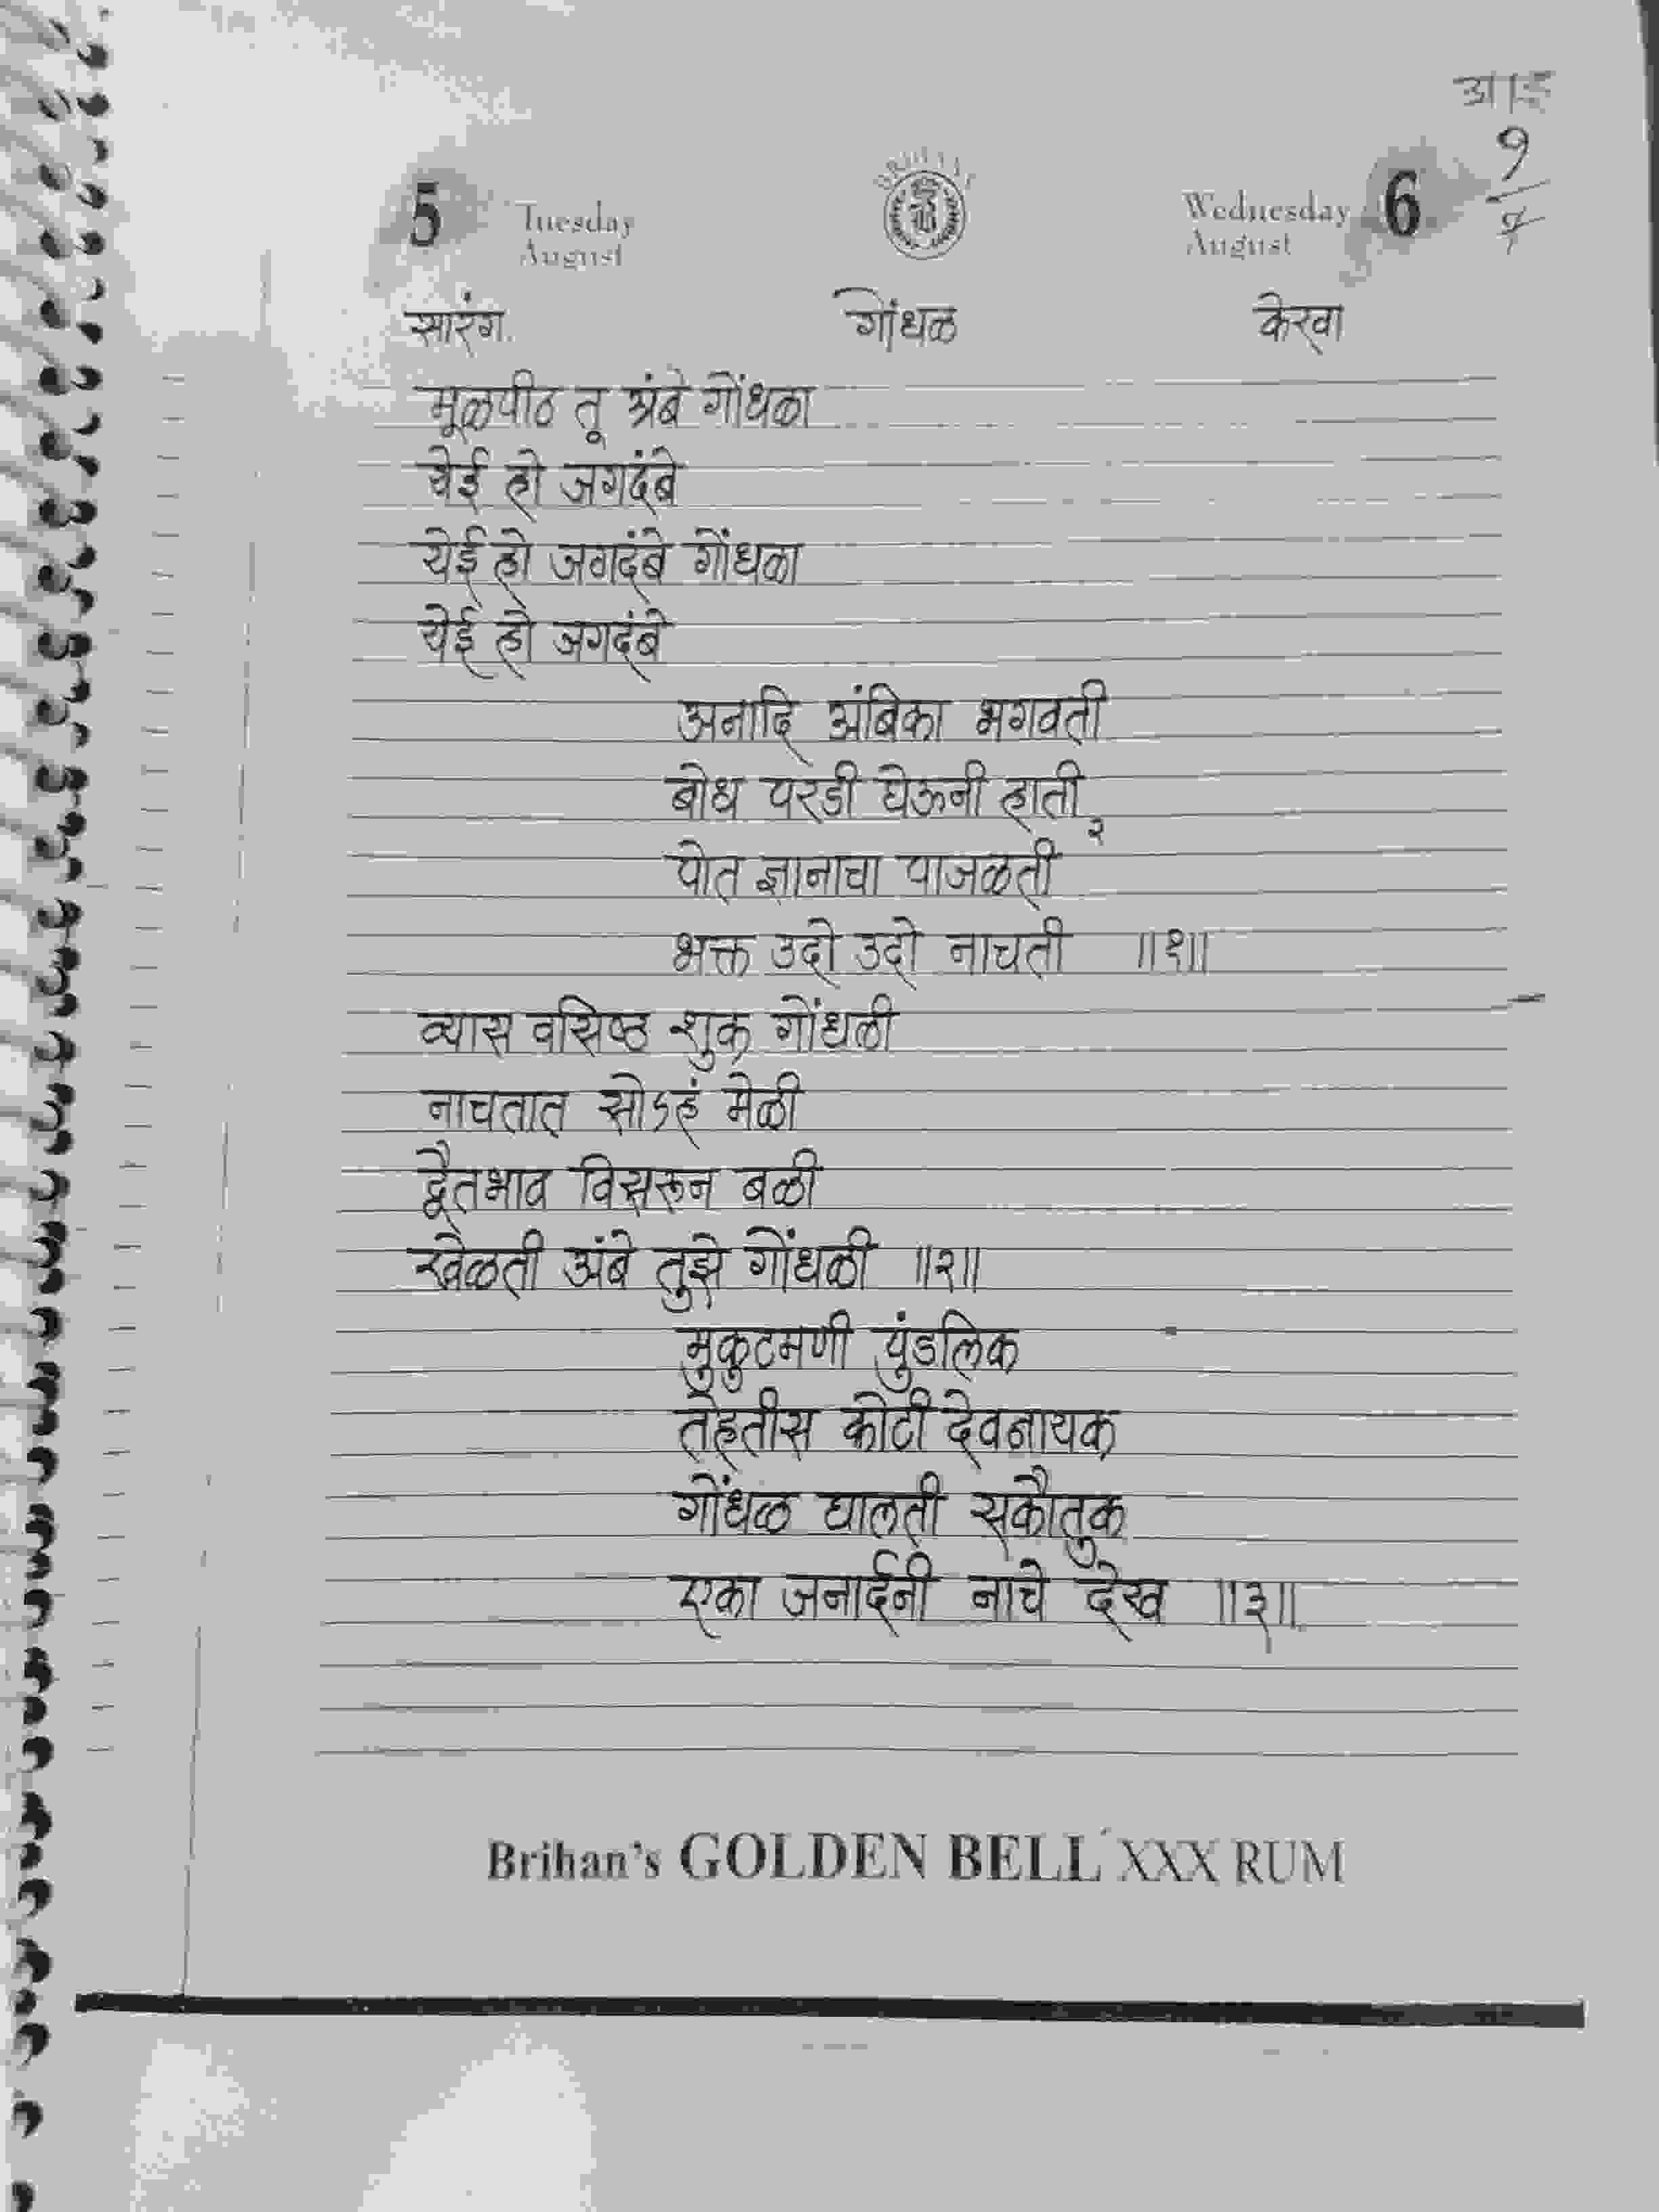 5 Tuesday August
Wednesday August 6
१
सारंग. गोंधळ केरवा
मूळपीठ तू अंबे गोंधळा
येई हो जगदंबे
येई हो जगदंबे गोंधळा
येई हो जगदंबे
अनादि अंबिका भगवती
बोध परडी घेऊनी हाती २
पोत ज्ञानाचा पाजळती
भक्त उदो उदो नाचती ॥१॥
व्यास वसिष्ठ शुक गोंधळी
नाचतात सोऽहं मेळी
द्वैतभाव विसरून बळी
खेळती अंबे तुझे गोंधळी ॥२॥
मुकुटमणी पुंडलिक
तेहतीस कोटी देवनायक
गोंधळ घालती सकौतुक
एका जनार्दनी नाचे देख ॥३॥
Brihan's GOLDEN BELL XXX RUM